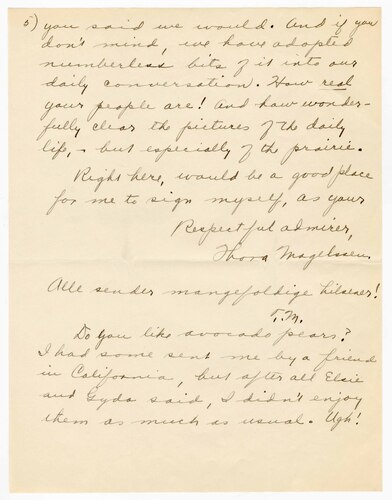 5) you said we would. And if you
don't mind, we have adopted
numberless bits of it into our
daily conversation. How real
your people are! And how wonder-
fully clear the pictures of the daily
life, - but especially of the prairie.
Right here, would be a good place
for me to sign myself, as your
Respectful admirer,
Thora Magelssen
Alle sender mangefoldige hilsener!
T.M.
Do you like avocado pears?
I had some sent me by a friend
in California, but after all Elsie
and Gyda said, I didn't enjoy
them as much as usual. Ugh!